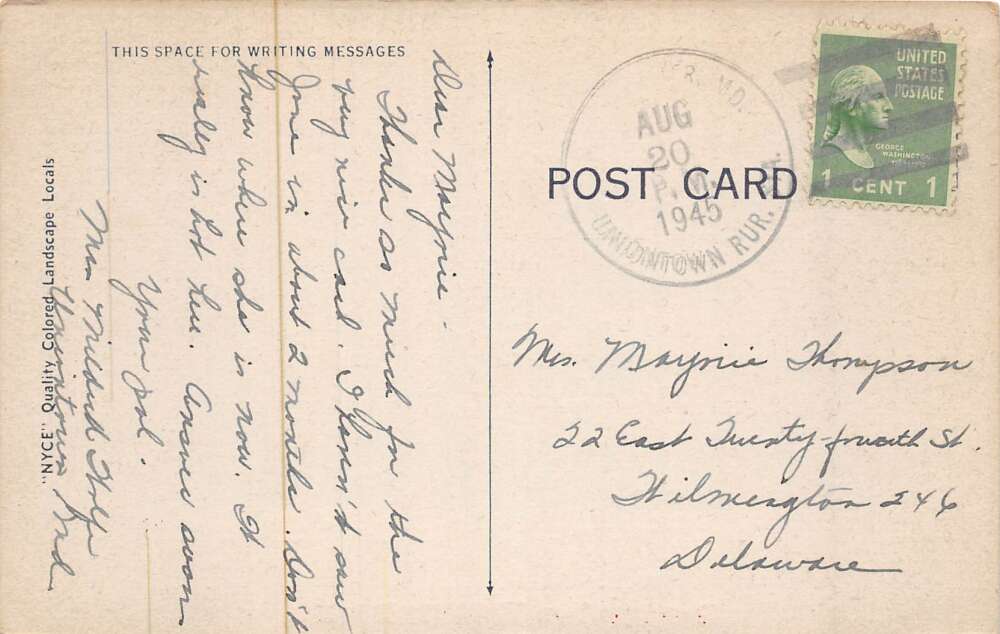 THIS SPACE FOR WRITING MESSAGES
Dear Marjorie -
Thanks so much for the
very nice card. I haven't saw
June in about 2 months. Don't
know where she is now. It
realey is hot here. Answer soon
Your pal.
Mrs Mildred Wolfe
Uniontown Md.
"NYCE" Quality Colored Landscape Locals
POST CARD
MD.
AUG
20
P.M.
1945
UNIONTOWN RUR.
UNITED
STATES
POSTAGE
GEORGE
WASHINGTON
1 CENT 1
Mrs. Marjorie Thompson
22 East Twenty-fourth St.
Wilmington 246
Delaware